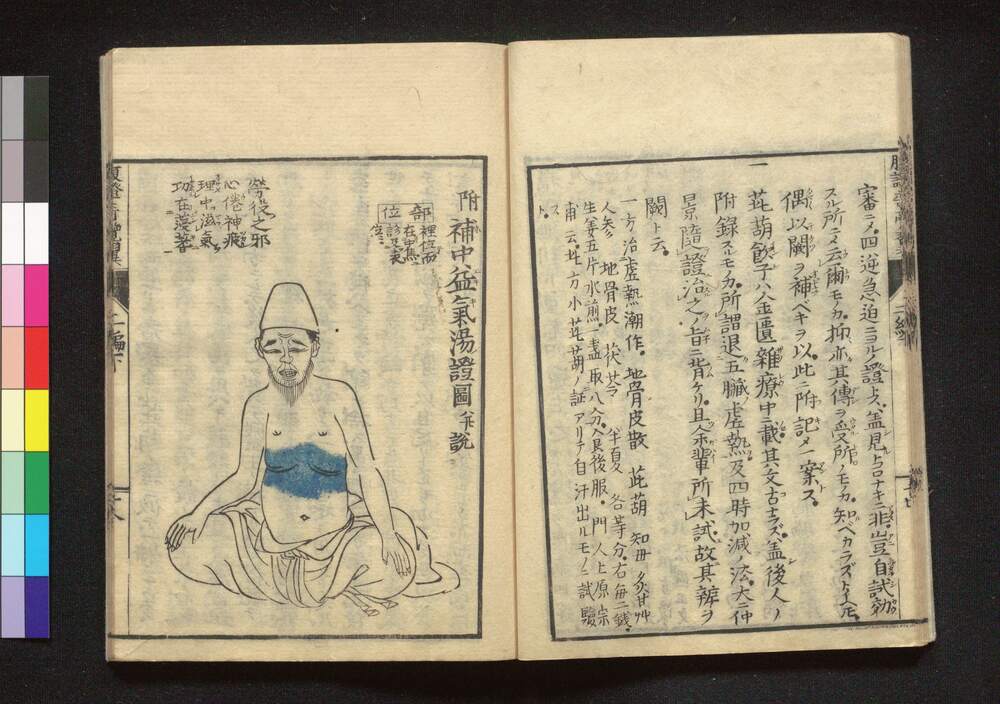 審ニメ。四逆急迫ニヨルノ證ト。盖見ルコロナキニ非。豈自試効
スル所ニメ云爾モノカ。抑亦其傳ヲ受所ノモノカ。知ベカラズト𧈧モ。
偶以闕ヲ補ベキヲ以。此ニ附記メ一案ス。
一
茈葫飲子ハ金匱雜療中ニ載。其文古キラズ。盖後人ノ
附錄スルモノカ。所謂退五臟虛熱及四時加減ノ法。大ニ仲
景隨證治之ノ旨ニ背ケリ。且余輩所未試。故其辨ヲ
闕ト云。
一方治虛熱潮作。地骨皮散 茈葫 知母 炙甘艸
人參 地骨皮 茯苓 半夏 各等分。右每二錢。
生姜五片水煎一盞取八分食後服。門人上原宗
甫云。此方小茈葫ノ証アリテ自汗出ルモノニ試驗
ス
附 補中益氣湯證圖 并說
部位
裡位而在中焦
診及表
勞役之邪
心倦神疲
理中滋氣
功在濩蓍
二編下